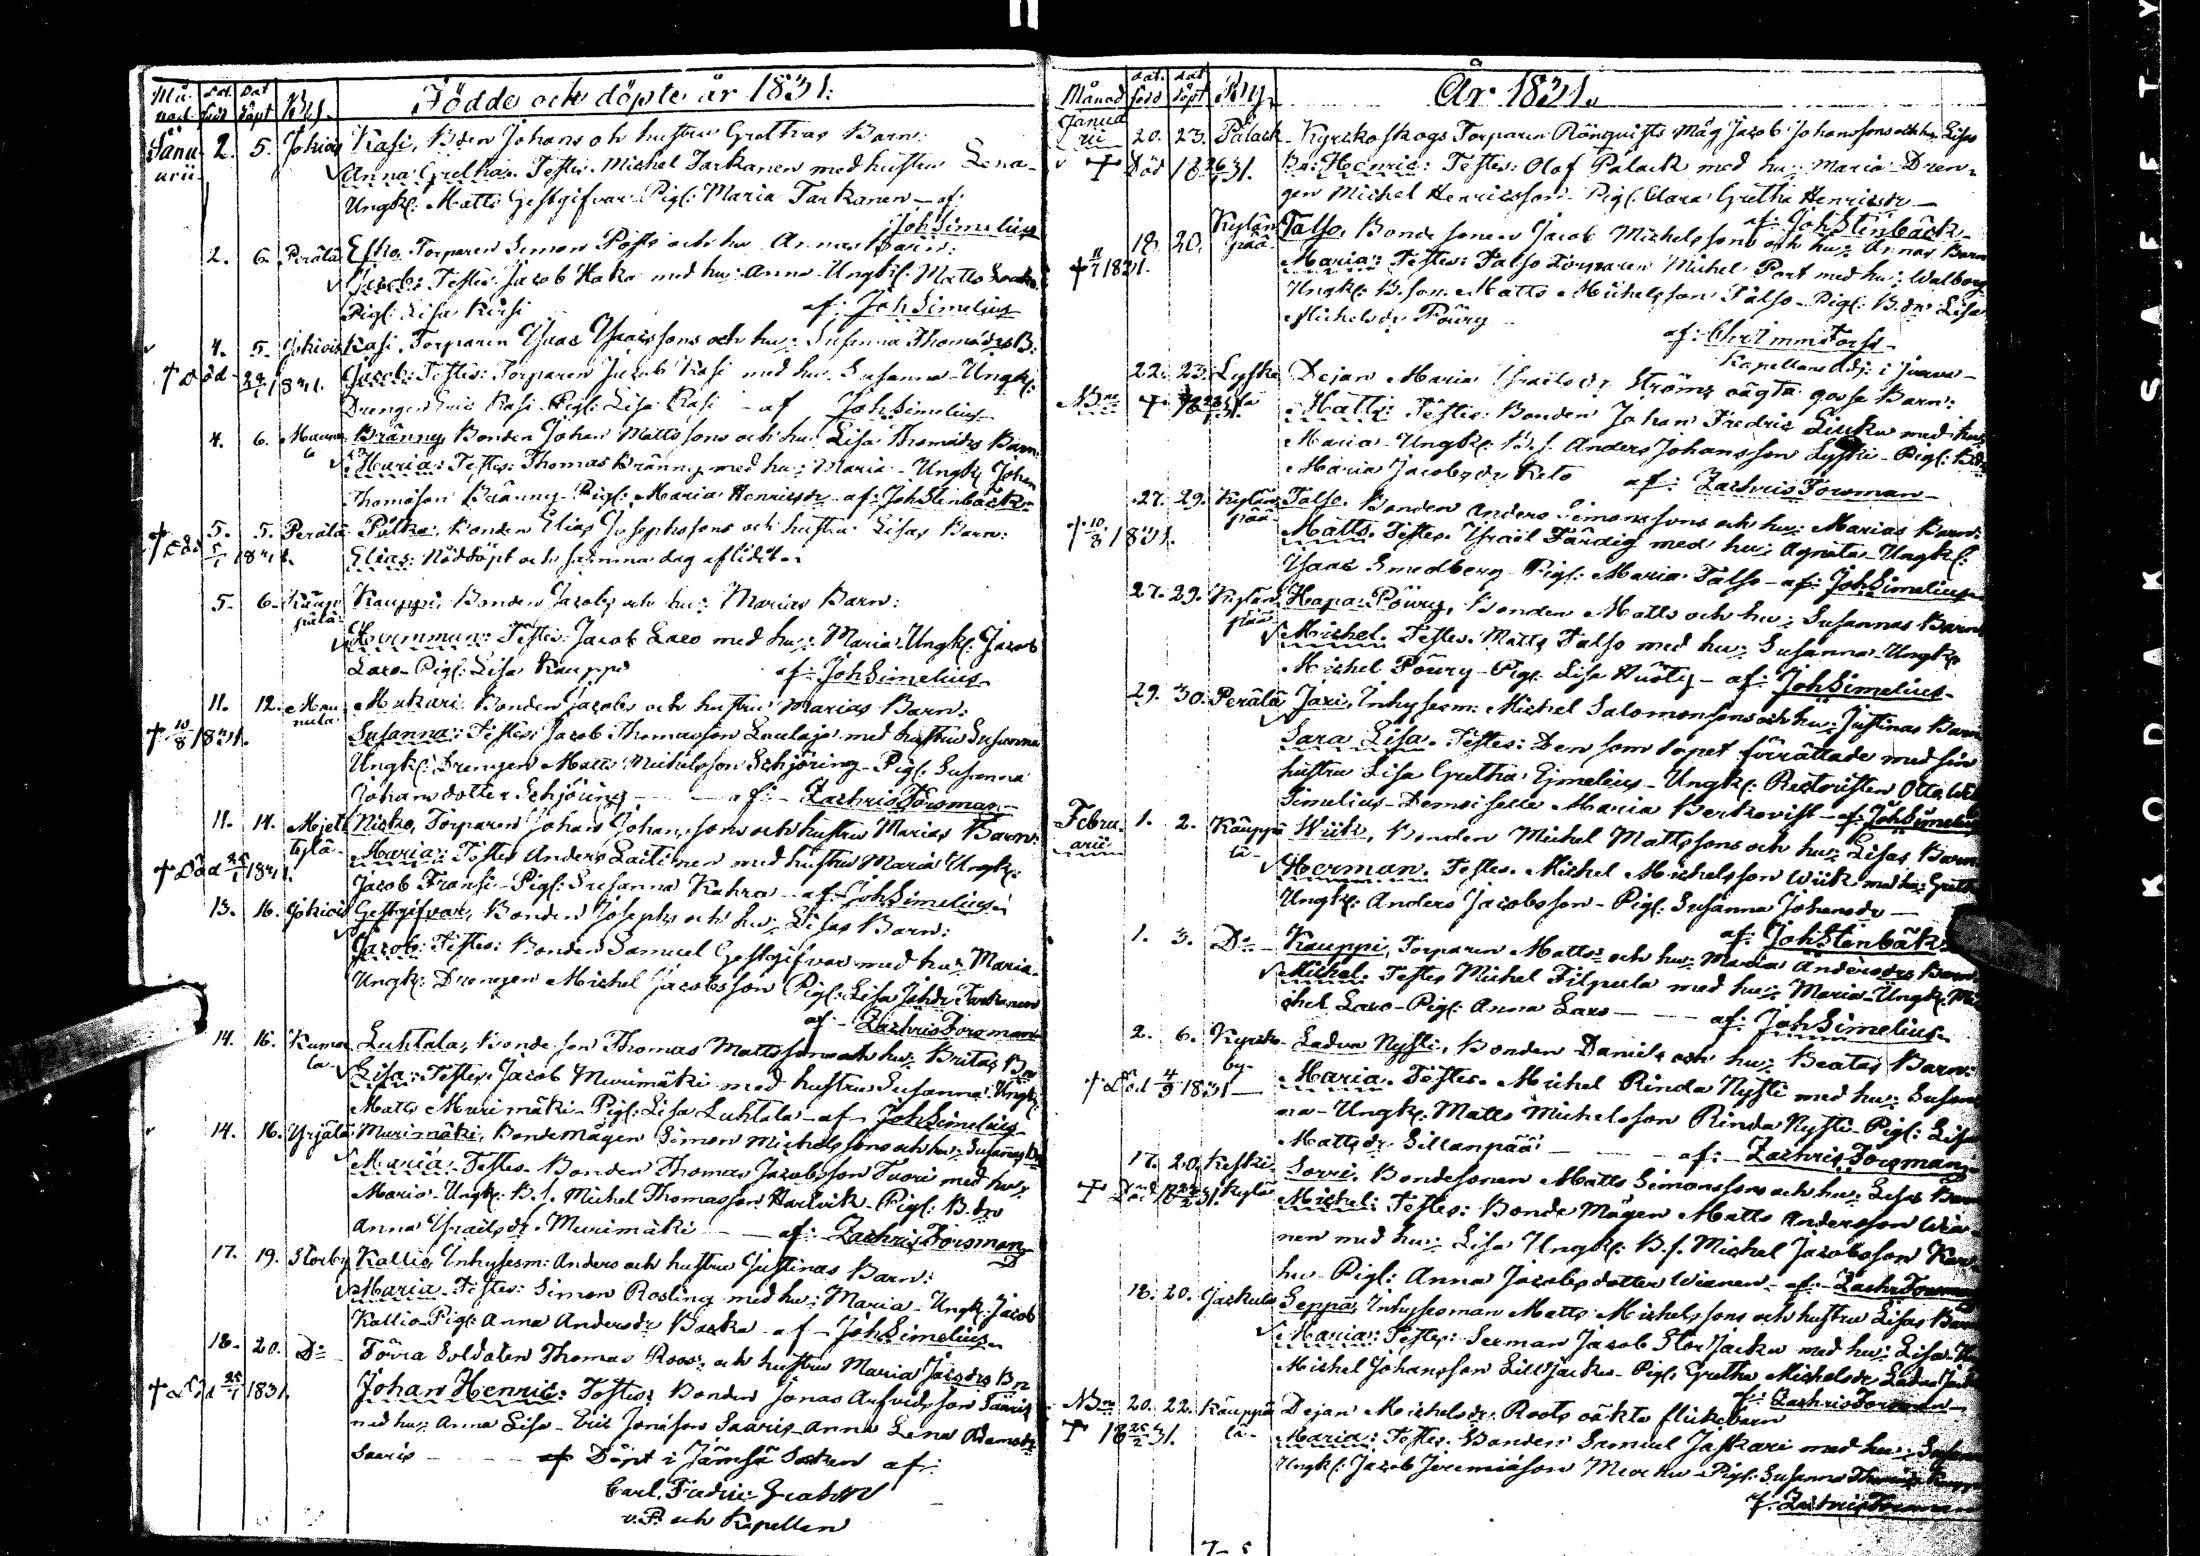 Må-
nad
dat.
född
Dat
döpt
By.
Födde och döpte år 1831.
Janu-
arii
2. 5. Jokiois Kasi, Bden Johans och hustru Grethas Barn:
Anna Gretha. Testes. Michel Tarkanen med hustru Lena-
Ungk: Matts Gestgifvar. Pig: Maria Tarkanen - af:
Joh Simelius
2. 6. Perälä Esko, Torparen Simon Pösts och hu Annas Barn:
Jacob: Testes. Jacob Hako med hu: Anna. Ungk: Matts
Pig: Lisa Kasi af: Joh Simelius
4. 5. Jokiois Kasi, Torparen Ysaac Ysaacssons och hu: Susanna Thomædrs B:
† Död 1831. Jacob: Testes: Torparen Jacob Kasi med hu. Susanna - Ungk:
Drengen Eric Kasi. Pig: Lisa Kasi - af Joh Simelius
4. 6. Mannala Bränny, Bonden Johan Mattssons och hu Lisa Thomædrs Barn
Maria: Testes: Thomas Bränny med hu: Maria - Ungk Johan
Thomasson Bränny - Pig: Maria Henricsdr - af: Joh Stenbäck
5. 5. Perälä Pölka, Bonden Elias Josephssons och hustru Lisas Barn:
† död 5/1 1831. Elias: Nöddöpt och samma dag afliden
5. 6. Kauppila Kauppi, Bonden Jacobs och hu: Marias Barn:
Hermman: Testes: Jacob Laxo med hu: Maria. Ungk: Jacob
Laxo - Pig: Lisa Kauppi af: Joh Simelius
11. 12. Mannula Makari Bonden Jacobs och hustru Marias Barn:
† 10/8 1831. Susanna: Testes: Jacob Thomasson Laulaja med hustru Susanna
Ungk: Drengen Matts Michelsson Schjöring - Pig: Susanna
Johansdotter Schjöring - af: - Zachris Forsman
11. 14. Mjetlä Nisko, Torparen Johan Johanssons och hustru Marias Barn:
† Död 25/1 1831. Maria: Testes Anders Laitinen med hustru Maria Ungk:
Jacob Fransi - Pig: Susanna Kahra - af: Joh Simelius
13. 16. Jokiois Gestgifvar, Bonden Josephs och hu: Lisas Barn:
Jacob: Testes: Bonden Samuel Gestgifvar med hu: Maria.
Ungk: Drengen Michel Jacobsson Pig: Lisa Johdr Tarkanen
af - Zachris Forsman
14. 16. Luhtala, Bondeson Thomas Mattssons och hu: Britas Ba
Lisa: Testes. Jacob Murimäki med hustru Susanna. Ungk:
Matts Murimäki - Pig: Lisa Luhtala - af Joh Simelius
14. 16. Yrjälä Murimäki, Bondemågen Simon Michelssons och hu: Susannas Ba
Maria - Testes. Bonden Thomas Jacobsson Tuori med hu:
Maria - Ungk: B.s. Michel Thomasson Harlvik - Pig: B.dr
Anna Ysraelsdr. Murimäki - af: Zachris Forsman
17. 19. Storby Kallio, Inhysesm: Anders och hustru Justinas Barn:
Maria - Testes: Simon Rosling med hu: Maria - Ungk: Jacob
Kallio - Pig: Anna Andersdr Backa - af - Joh Simelius
18. 20. Do Förra Soldaten Thomas Roos: och hustru Maria Jacsdrs Bn
† Död 25/1 1831. Johan Henric: Testes: Bonden Jonas Anfvidsson Saaris
med hu: Anna Lisa - Eric Jonasson Saaris - Anna Lena Adamsdr
Saaris - Döpt i Jämsä Socken af:
Carl Fredric
v. P. och Kapellan
Månad
dat.
född
dat
döpt
By.
År 1831.
Janua-
rii
20. 23. Palack Kyrckoskogs Torparen Rönqvists Måg Jacob Johanssons och hu Lisas
† Död 18 26/1 31. Bn: Henric: Testes: Olof Palack med hu: Maria - Dren-
gen Michel Henricsson - Pig: Clara Gretha Henricsdr -
af: Joh Stenbäck
18. 20. Kylänpää Talso, Bondesonen Jacob Michelssons och hu: Annas Barn
† 11/7 1831. Maria: Testes: Talso Torparen Michel Port med hu: Walborg
Ungk: B.son. Matts Michelsson Talso - Pig: B.dr Lisa
Michelsdr Pöyry af: Chr Immforss
Kapellans Adj: i
22. 23. Lyski Dejan Maria Israelsdr Ströms oägta gosse Barn:
NB Matts: Testes: Bonden Johan Fredric Liuku med hu:
Maria - Ungk: B.s. Anders Johansson Lyski - Pig: B.dr
Maria Jacobsdr Keto af: Zachris Forsman
27. 29. Kylänpää Talso. Bonden Anders Simonssons och hu: Marias Barn:
† 10/8 1831. Matts. Testes. Ysrael Färdig med hu: Agnäta - Ungk:
Ysaac Smedberg - Pig: Maria Talso - af: Joh Simelius
27. 29. Kylänpää Hapa-Pöyry, Bonden Matts och hu: Susannas Barn
Michel. Testes. Matts Talso med hu: Susanna - Ungk:
Michel Pöyry - Pig: Lisa - af: Joh Simelius
29. 30. Perälä Jaxi, Inhysesm: Michel Salomonssons och hu: Justinas Barn
Sara Lisa. Testes: Den som dopet förrättade med sin
hustru Lisa Gretha Simelius - Ungk: Rectoristen Otto
Simelius - Demoiselle Maria Berkqvist - af: Joh Simelius
Febru-
arii
1. 2. Kauppila Wiik, Bonden Michel Mattssons och hu: Lisas Barn
Herman. Testes. Michel Michelsson Wiik med hu: Greth
Ungk: Anders Jacobsson - Pig: Susanna Johansdr -
af: Joh Stenbäck
1. 3. Do Kauppi, Torparen Matts och hu: Maria Andersdrs Barn
Michel. Testes Michel Filpula med hu: Maria - Ungk: Mi-
chel Laxo - Pig: Anna Laxo - af: Joh Simelius
2. 6. Kyrckoby Ladva Nysti, Bonden Daniels och hu: Beatas Barn:
† Död 4/9 1831 Maria. Testes. Michel Rinda Nysti med hu: Susan
na - Ungk: Matts Michelsson Rinda Nysti - Pig: Lisa
Mattsdr Sillanpää - af: - Zachris Forsman
17. 20. Keskikylä Sorri. Bondesonen Matts Simonssons och hu: Lisas Barn
† Död Michel: Testes: Bonde Mågen Matts Andersson Wia-
nen med hu: Lisa Ungk: B.s. Michel Jacobsson
hu - Pig: Anna Jacobsdotter Wianen - af: Zachr Forsman
18. 20. Jackula Seppä, Inhysesman Matts Michelssons och hustru Lisas Barn
Maria: Testes: Seeman Jacob StorJacku med hu: Lisa.
Michel Johansson LillJacku - Pig: Gretha Michelsdr
af: Zachris Forsman
NB 20. 22. Kauppila Dejan Michelsdr. Roots oäkta flickebarn
† 18 25/2 31. Maria: Testes. Bonden Samuel Jaskari med hu: Susanna
Ungk: Jacob Jeremiasson - Pig: Susanna
af: Zachris Forsman
KODAK SAFETY